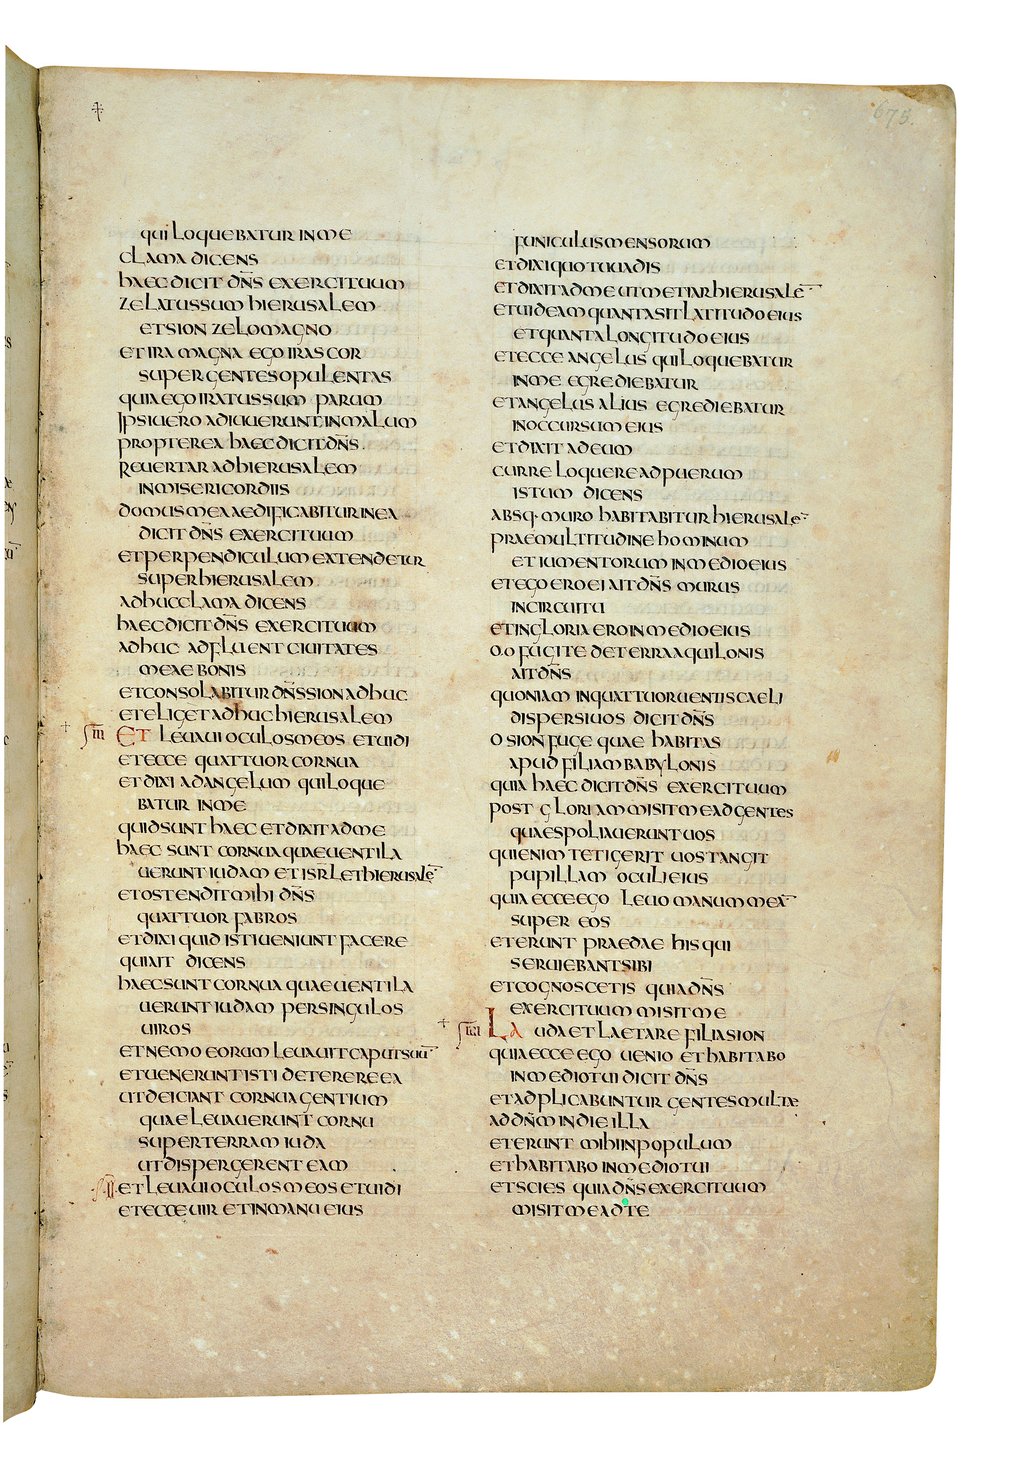 675.
qui loquebatur in me
clama dicens
haec dicit dn̄s exercituum
zelatus sum hierusalem
et sion zelo magno
et ira magna ego irascor
super gentes opulentas
quia ego iratus sum parum
ipsi uero adiuuerunt in malum
propterea haec dicit dn̄s
reuertar ad hierusalem
in misericordiis
domus mea aedificabitur in ea
dicit dn̄s exercituum
et perpendiculum extendetur
super hierusalem
adhuc clama dicens
haec dicit dn̄s exercituum
adhuc adfluent ciuitates
meae bonis
et consolabitur dn̄s sion adhuc
et eliget adhuc hierusalem
Et leuaui oculos meos et uidi
et ecce quattuor cornua
et dixi ad angelum qui loque
batur in me
quid sunt haec et dixit ad me
haec sunt cornua quae uentila
uerunt iudam et isr̄l et hierusalē
et ostendit mihi dn̄s
quattuor fabros
et dixi quid isti ueniunt facere
qui ait dicens
haec sunt cornua quae uentila
uerunt iudam per singulos
uiros
et nemo eorum leuauit caput suū
et uenerunt isti deterere ea
ut deiciant cornua gentium
quae leuauerunt cornu
super terram iuda
ut dispergerent eam
et leuaui oculos meos et uidi
et ecce uir et in manu eius
funiculus mensorum
et dixi quo tu uadis
et dixit ad me ut metiar hierusalē
et uideam quanta sit latitudo eius
et quanta longitudo eius
et ecce angelus qui loquebatur
in me egrediebatur
et angelus alius egrediebatur
in occursum eius
et dixit ad eum
curre loquere ad puerum
istum dicens
absq· muro habitabitur hierusalē
prae multitudine hominum
et iumentorum in medio eius
et ego ero ei ait dn̄s murus
in circuitu
et in gloria ero in medio eius
o o fugite de terra aquilonis
ait dn̄s
quoniam in quattuor uentis caeli
dispersi uos dicit dn̄s
o sion fuge quae habitas
apud filiam babylonis
quia haec dicit dn̄s exercituum
post gloriam misit me ad gentes
quae spoliauerunt uos
qui enim tetigerit uos tangit
pupillam oculi eius
quia ecce ego leuo manum meā
super eos
et erunt praedae his qui
seruiebant sibi
et cognoscetis quia dn̄s
exercituum misit me
Lauda et laetare filia sion
quia ecce ego uenio et habitabo
in medio tui dicit dn̄s
et adplicabuntur gentes multae
ad dn̄m in die illa
et erunt mihi in populum
et habitabo in medio tui
et scies quia dn̄s exercituum
misit me ad te